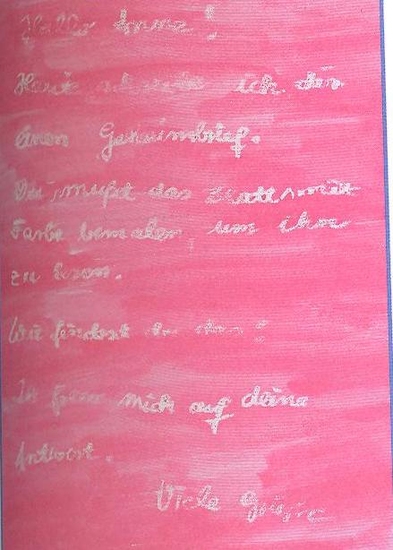 Hallo !
Heute schreibe ich dir
einen Geheimbrief.
Du mußt das Blatt mit
Farbe bemalen, um ihn
zu lesen.
Wie findest du das?
Ich freue mich auf deine
Antwort.
Viele Grüße